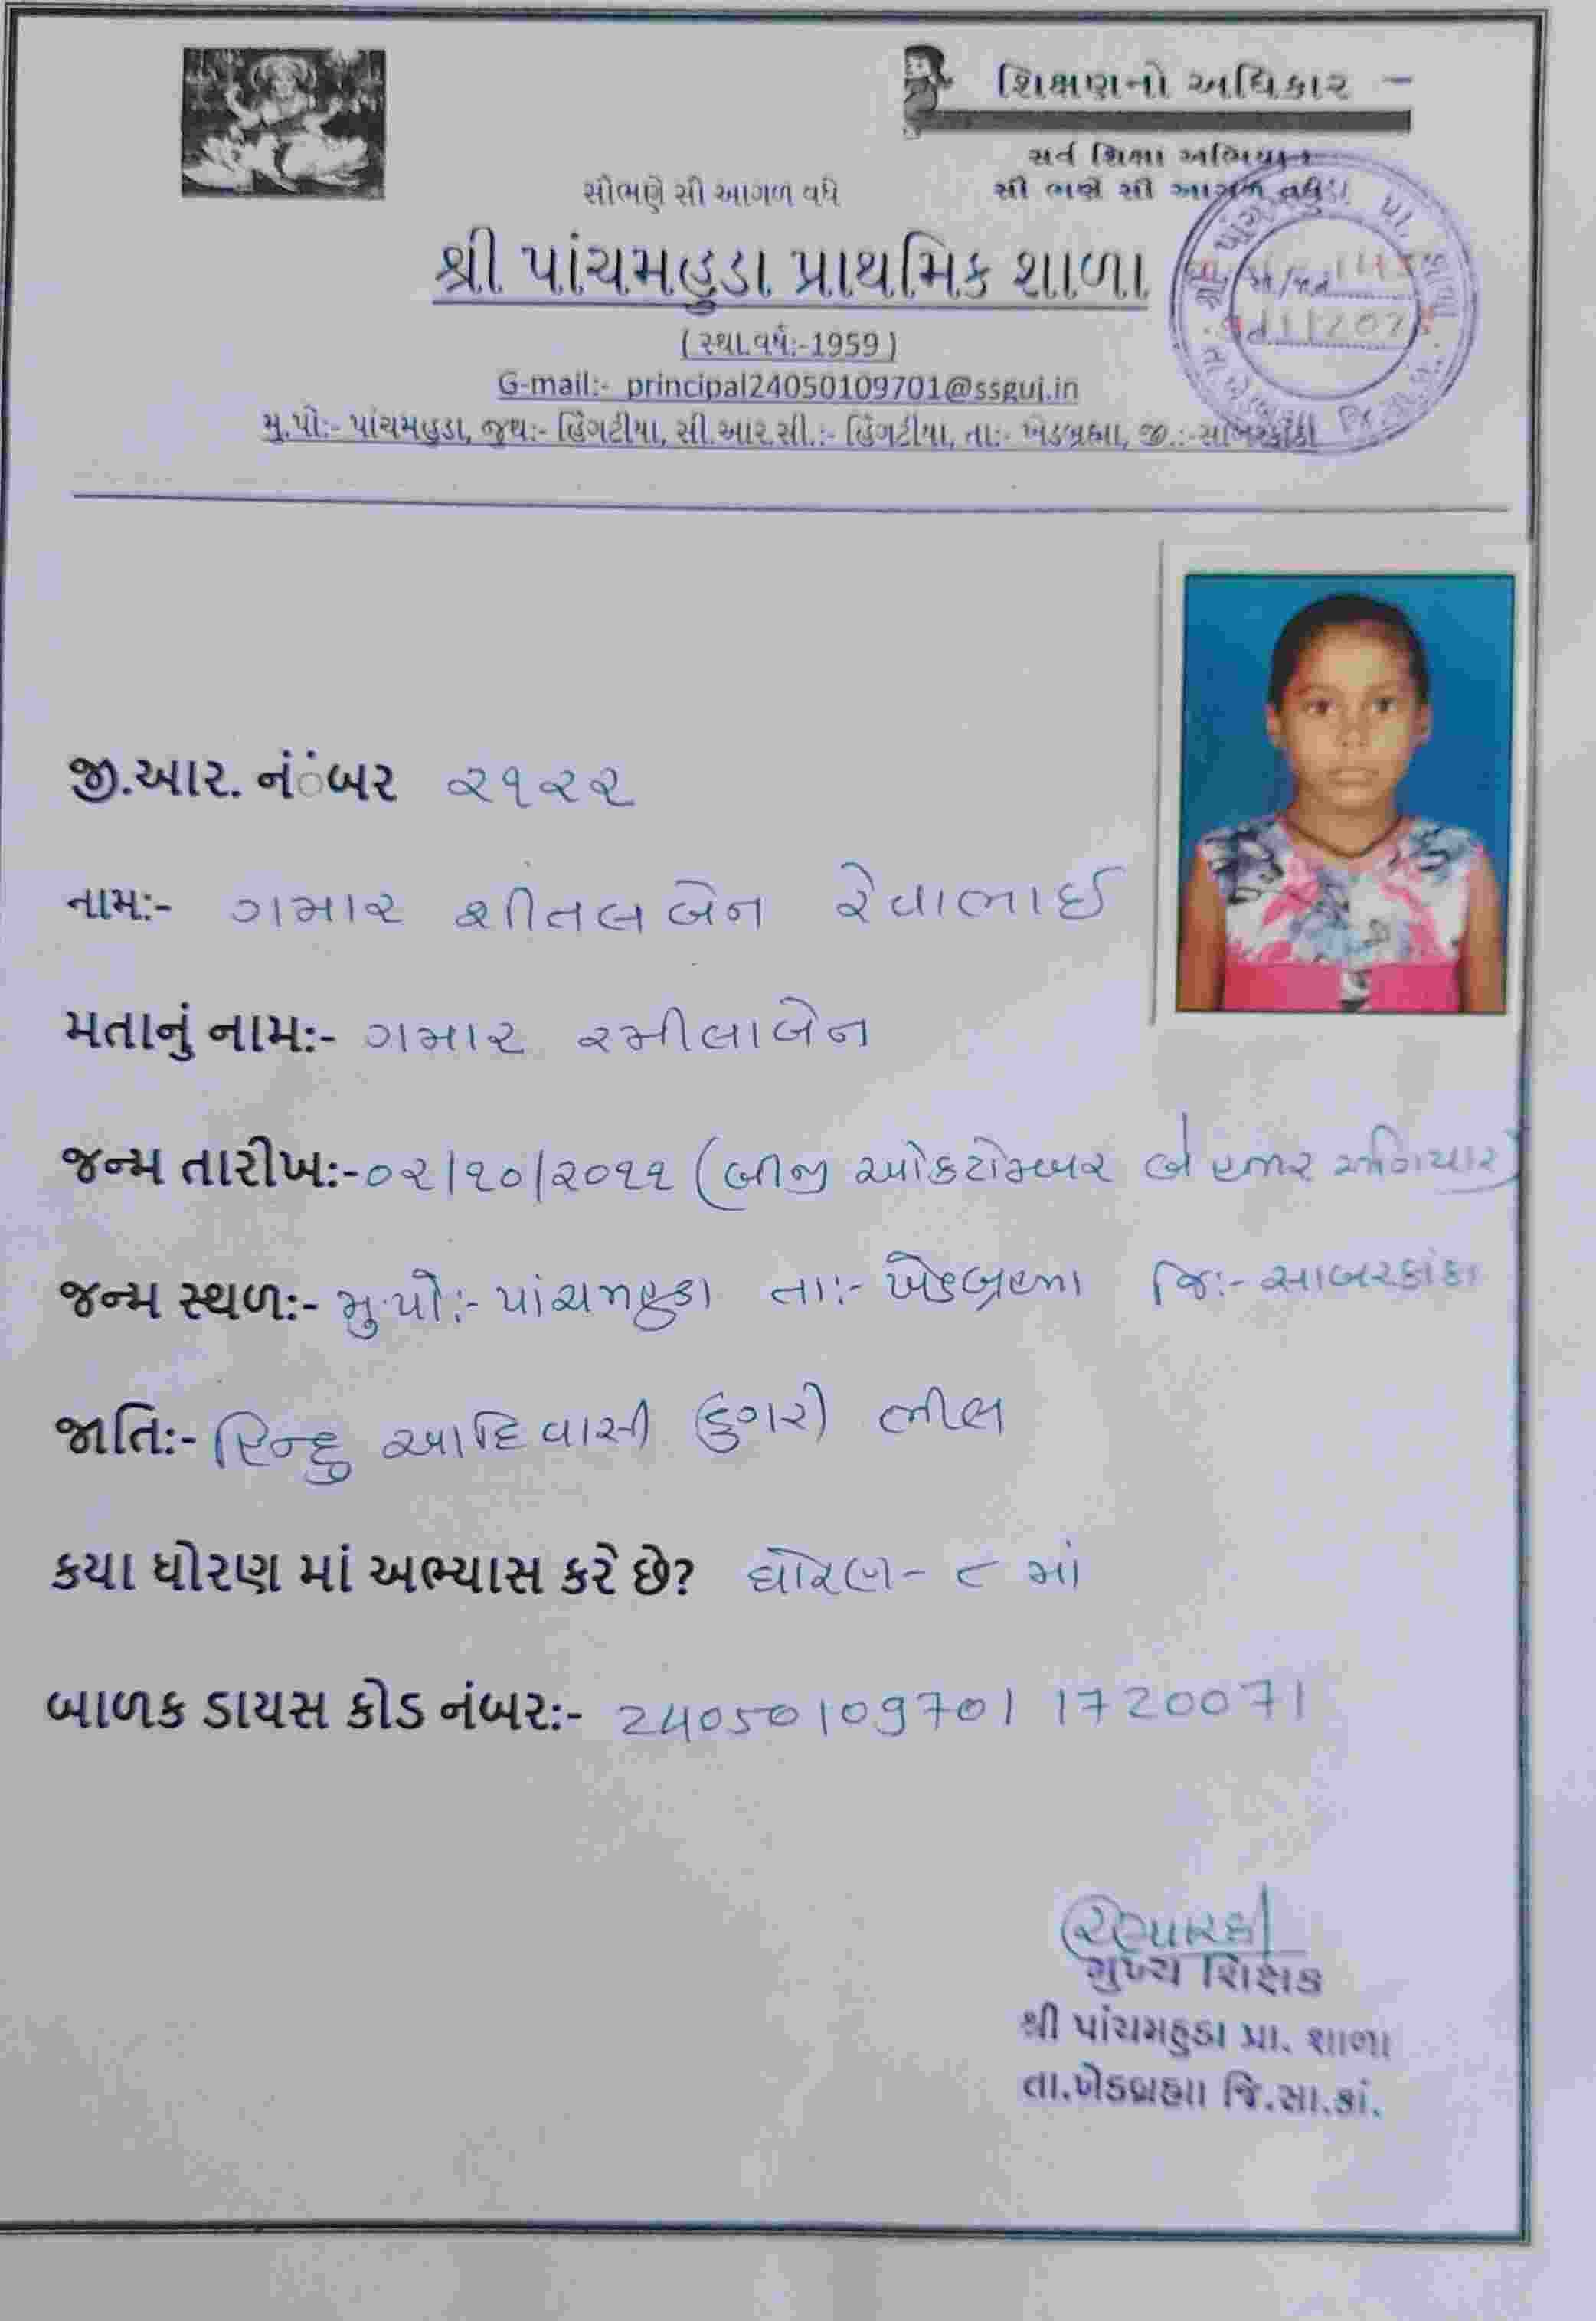 શિક્ષણનો અધિકાર -
સર્વ શિક્ષા અભિયાન
સૌ ભણે સૌ આગળ વધે
સૌભણે સૌ આગળ વધે
શ્રી પાંચમહુડા પ્રાથમિક શાળા
( સ્થા.વર્ષ:-1959 )
G-mail:- principal24050109701@ssguj.in
મુ.પો:- પાંચમહુડા, જુથ:- હિંગટીયા, સી.આર.સી.:- હિંગટીયા, તા:- ખેડબ્રહ્મા, જી.:-સાબરકાંઠા
જી.આર. નંંબર ૨૧૨૨
નામ:- ગમાર શીતલબેન રેવાભાઈ
મતાનું નામ:- ગમાર રમીલાબેન
જન્મ તારીખ:-૦૨/૧૦/૨૦૧૧ (બીજી ઓકટોમ્બર બે હજાર અગિયાર)
જન્મ સ્થળ:- મુ.પો:- પાંચમહુડા તા:- ખેડબ્રહ્મા જિ:- સાબરકાંઠા
જાતિ:- હિન્દુ આદિવાસી ડુંગરી ભીલ
કયા ધોરણ માં અભ્યાસ કરે છે? ધોરણ- ૮ માં
બાળક ડાયસ કોડ નંબર:- 24050109701 1720071
મુખ્ય શિક્ષક
શ્રી પાંચમહુડા પ્રા. શાળા
તા.ખેડબ્રહ્મા જિ.સા.કાં.